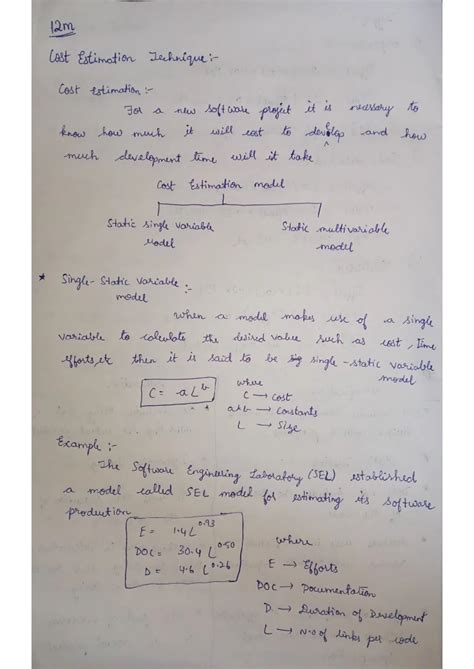 12m
Cost Estimation Technique:-
Cost estimation :-
For a new software project it is necessary to
know how much it will cost to develop and how
much development time will it take
Cost Estimation model
Static single variable model
Static multivariable model
* Single-Static variable model :-
When a model makes use of a single
variable to calculate the desired value such as cost, time
efforts, etc then it is said to be single-static variable
model
C = aL^b
where
C → Cost
a & b → Constants
L → Size
Example :-
The Software Engineering Laboratory (SEL) established
a model called SEL model for estimating its software
production
E = 1.4L^0.93
DOC = 30.4L^0.90
D = 4.6L^0.26
where
E → Efforts
DOC → Documentation
D → Duration of Development
L → N.o of links per code